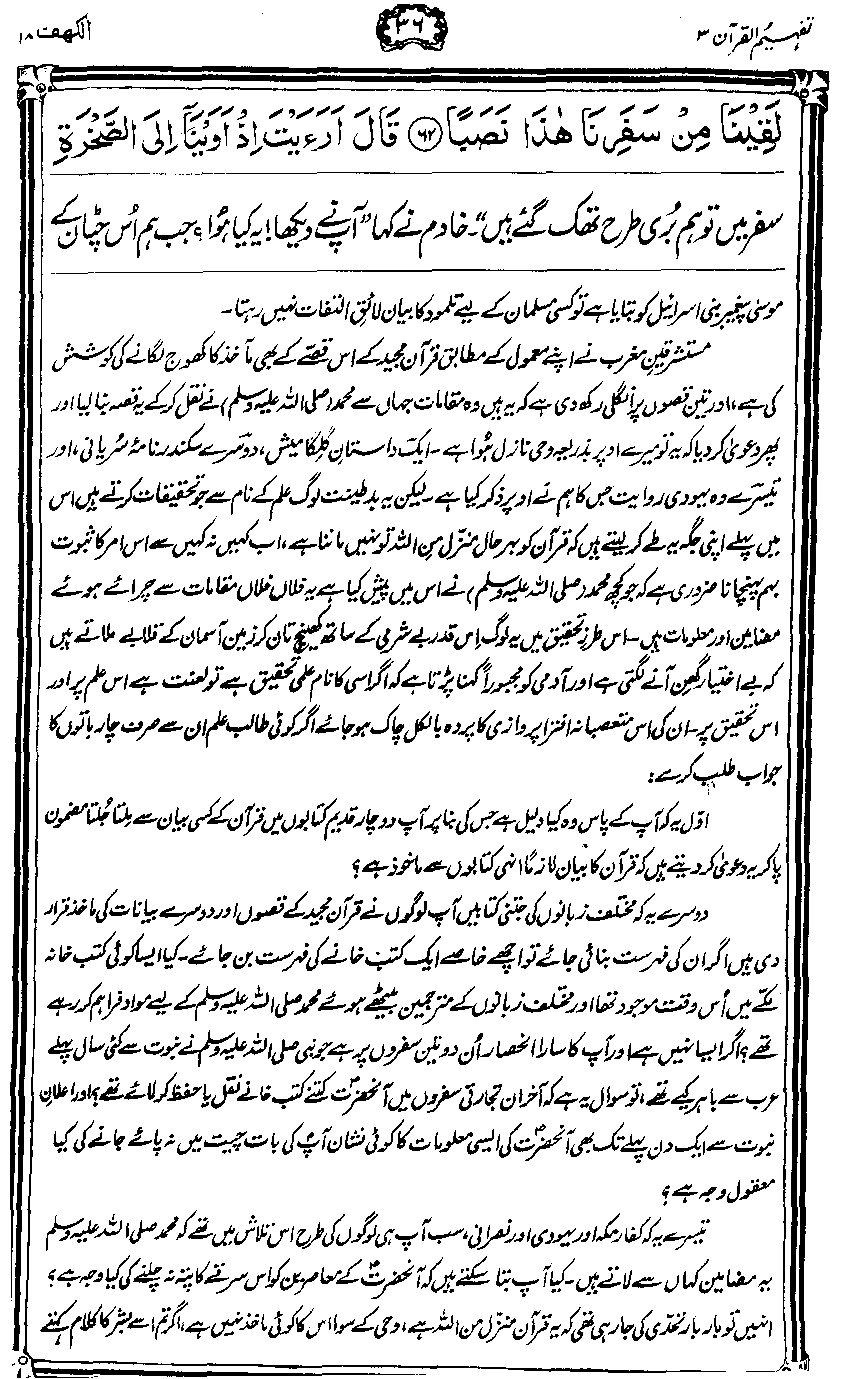 تفہیم القرآن ۳
۳۶
الکھف ۱۸
لَقِيْنَا مِنْ سَفَرِنَا هٰذَا نَصَبًا ﴿۶۲﴾ قَالَ اَرَءَيْتَ اِذْ اَوَيْنَآ اِلَى الصَّخْرَةِ
سفر میں تو ہم بُری طرح تھک گئے ہیں"۔ خادم نے کہا "آپ نے دیکھا! یہ کیا ہُوا؟ جب ہم اُس چٹان کے
موسیٰ پیغمبر بنی اسرائیل کو بتایا ہے تو کسی مسلمان کے لیے تلمود کا بیان لائقِ التفات نہیں رہتا۔
مستشرقینِ مغرب نے اپنے معمول کے مطابق قرآن مجید کے اس قصّے کے بھی مآخذ کا کھوج لگانے کی کوشش
کی ہے، اور تین قصوں پر انگلی رکھ دی ہے کہ یہ ہیں وہ مقامات جہاں سے محمد (صلی اللہ علیہ وسلم) نے نقل کر کے یہ قصہ بنا لیا اور
پھر دعویٰ کر دیا کہ یہ تو میرے اوپر بذریعہ وحی نازل ہُوا ہے۔ ایک داستانِ گِلگامیش، دوسرے سکندر نامۂ سُریانی، اور
تیسرے وہ یہودی روایت جس کا ہم نے اوپر ذکر کیا ہے۔ لیکن یہ بدطینت لوگ علم کے نام سے جو تحقیقات کرتے ہیں اس
میں پہلے اپنی جگہ یہ طے کر لیتے ہیں کہ قرآن کو بہرحال منزّل من اللہ تو نہیں ماننا ہے، اب کہیں نہ کہیں سے اس امر کا ثبوت
بہم پہنچانا ضروری ہے کہ جو کچھ محمد (صلی اللہ علیہ وسلم) نے اس میں پیش کیا ہے یہ فلاں فلاں مقامات سے چرائے ہوئے
مضامین اور معلومات ہیں۔ اس طرزِ تحقیق میں یہ لوگ اِس قدر بے شرمی کے ساتھ کھینچ تان کر زمین آسمان کے قلابے ملاتے ہیں
کہ بے اختیار گھن آنے لگتی ہے اور آدمی کو مجبوراً کہنا پڑتا ہے کہ اگر اسی کا نام علمی تحقیق ہے تو لعنت ہے اس علم پر اور
اس تحقیق پر۔ ان کی اس متعصبانہ افترا پردازی کا پردہ بالکل چاک ہو جائے اگر کوئی طالب علم ان سے صرف چار باتوں کا
جواب طلب کرے:
اوّل یہ کہ آپ کے پاس وہ کیا دلیل ہے جس کی بنا پر آپ دو چار قدیم کتابوں میں قرآن کے کسی بیان سے مِلتا جُلتا مضمون
پا کر یہ دعویٰ کر دیتے ہیں کہ قرآن کا بیان لازماً انہی کتابوں سے ماخوذ ہے؟
دوسرے یہ کہ مختلف زبانوں کی جتنی کتابیں آپ لوگوں نے قرآن مجید کے قصوں اور دوسرے بیانات کی ماخذ قرار
دی ہیں اگر ان کی فہرست بنائی جائے تو اچھے خاصے ایک کتب خانے کی فہرست بن جائے۔ کیا ایسا کوئی کتب خانہ
مکے میں اُس وقت موجود تھا اور مختلف زبانوں کے مترجمین بیٹھے ہوئے محمد صلی اللہ علیہ وسلم کے لیے مواد فراہم کر رہے
تھے؟ اگر ایسا نہیں ہے اور آپ کا سارا انحصار اُن دو تین سفروں پر ہے جو نبی صلی اللہ علیہ وسلم نے نبوت سے کئی سال پہلے
عرب سے باہر کیے تھے، تو سوال یہ ہے کہ آخر ان تجارتی سفروں میں آنحضرتؐ کتنے کتب خانے نقل یا حفظ کر لائے تھے؟ اور اعلانِ
نبوت سے ایک دن پہلے تک بھی آنحضرتؐ کی ایسی معلومات کا کوئی نشان آپؐ کی بات چیت میں نہ پائے جانے کی کیا
معقول وجہ ہے؟
تیسرے یہ کہ کفارِ مکہ اور یہودی اور نصرانی، سب آپ ہی لوگوں کی طرح اس تلاش میں تھے کہ محمد صلی اللہ علیہ وسلم
یہ مضامین کہاں سے لاتے ہیں۔ کیا آپ بتا سکتے ہیں کہ آنحضرتؐ کے معاصرین کو اس سرقے کا پتہ نہ چلنے کی کیا وجہ ہے؟
انہیں تو بار بار تحدّی کی جا رہی تھی کہ یہ قرآن منزل من اللہ ہے، وحی کے سوا اس کا کوئی ماخذ نہیں ہے، اگر تم اسے بشر کا کلام کہتے